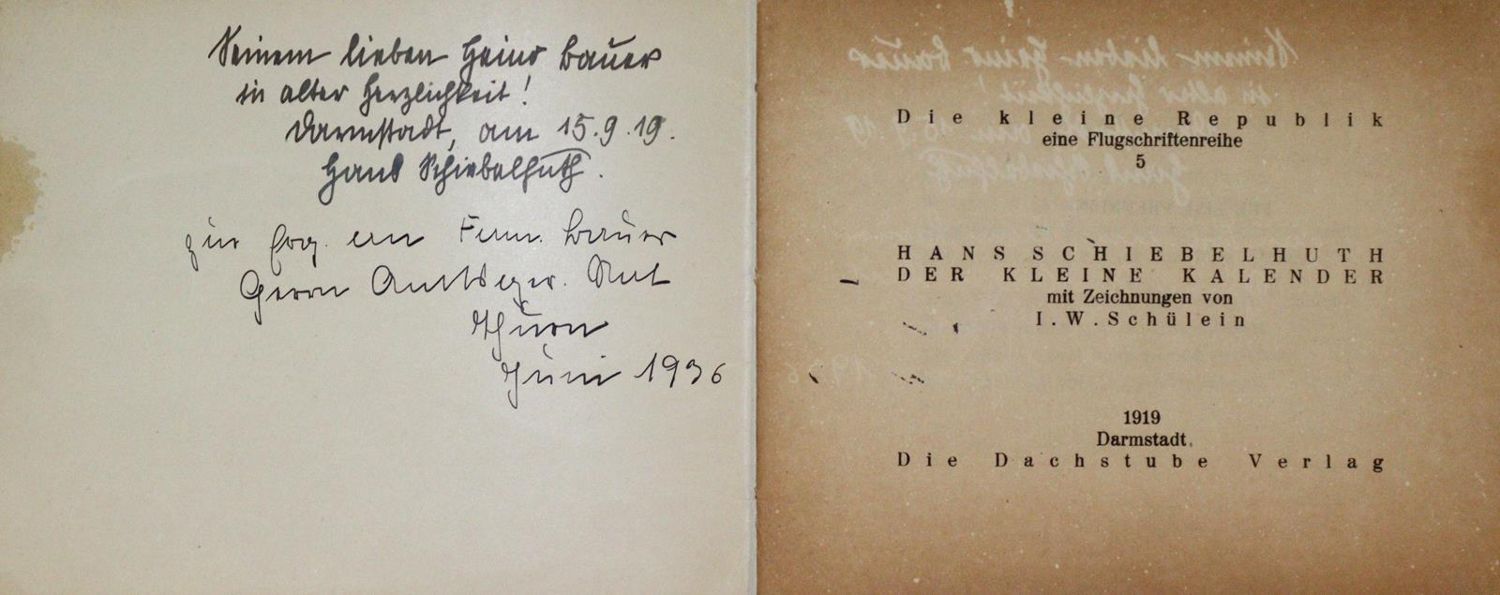 Seinem lieben Heino Bauer
in alter Herzlichkeit!
Darmstadt, am 15.9.19.
Hans Schiebelhuth.
zur an Bauer
Herrn Amtsger. Rat
Thurn
Juni 1936
Die kleine Republik
eine Flugschriftenreihe
5
HANS SCHIEBELHUTH
DER KLEINE KALENDER
mit Zeichnungen von
I. W. Schülein
1919
Darmstadt
Die Dachstube Verlag